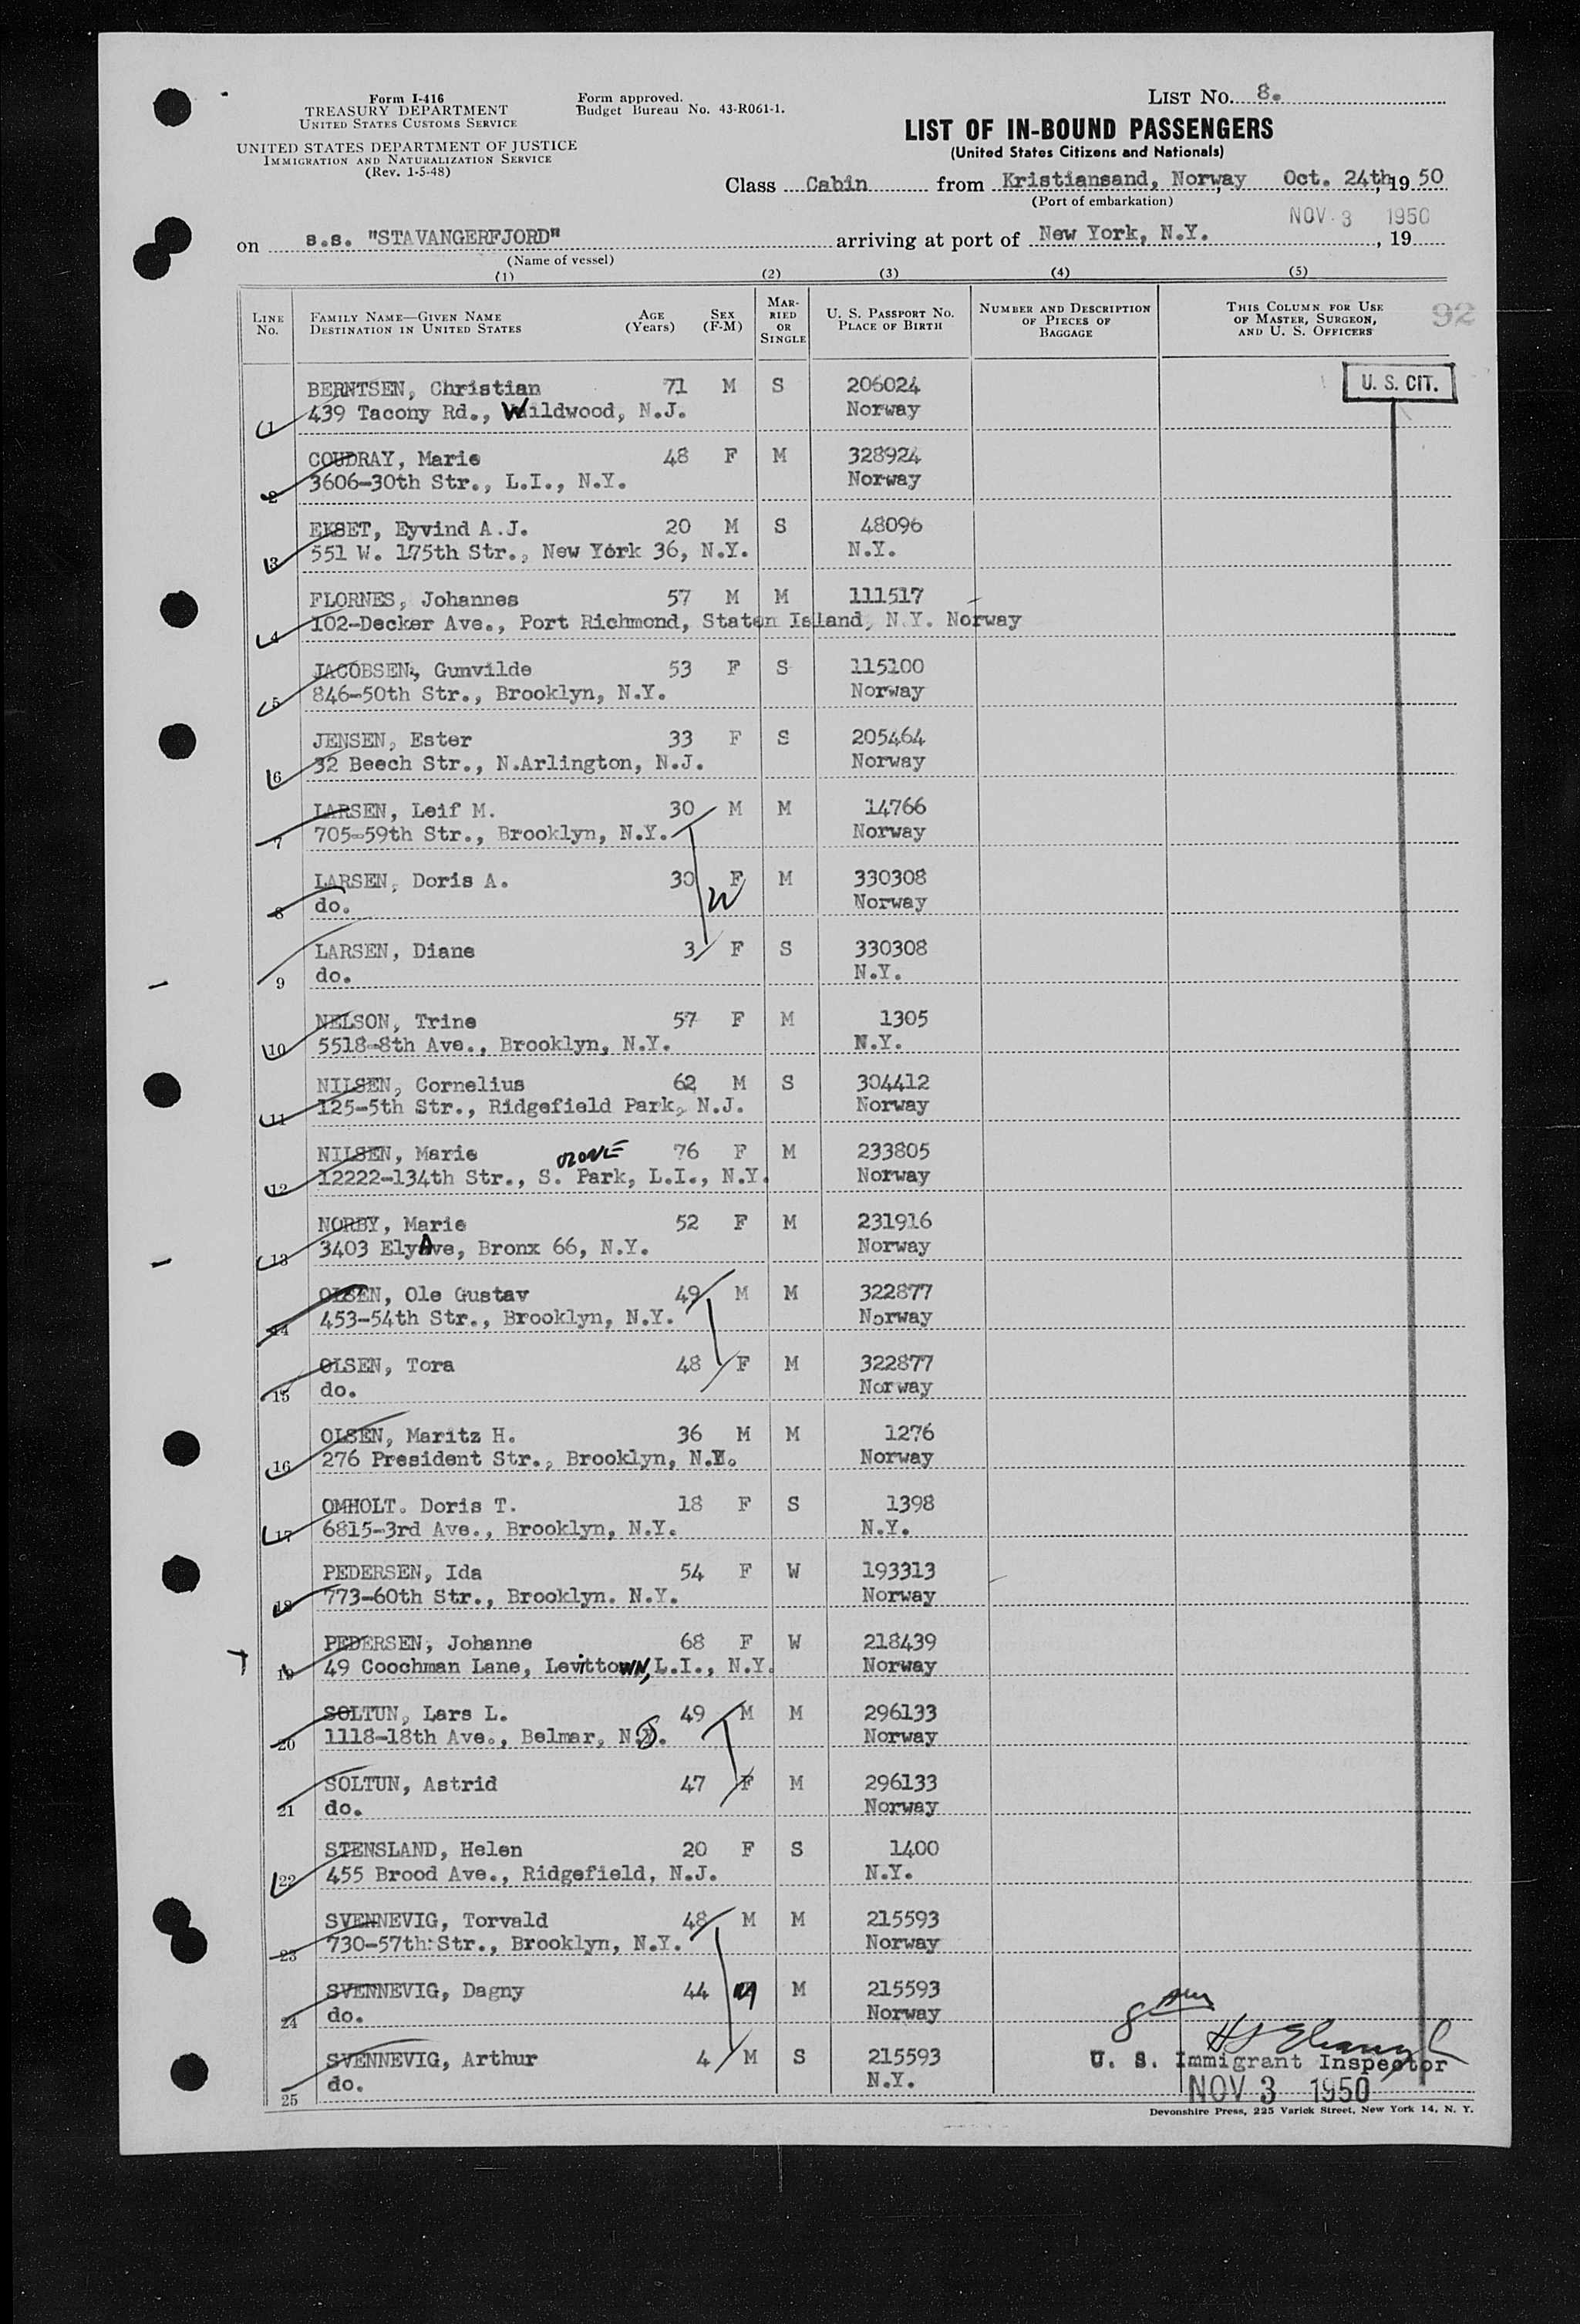 Form I-416
TREASURY DEPARTMENT
UNITED STATES CUSTOMS SERVICE
UNITED STATES DEPARTMENT OF JUSTICE
IMMIGRATION AND NATURALIZATION SERVICE
(Rev. 1-5-48)
Form approved.
Budget Bureau No. 43-R061-1.
LIST No. 8.
LIST OF IN-BOUND PASSENGERS
(United States Citizens and Nationals)
Class Cabin from Kristiansand, Norway Oct. 24th, 19 50
(Port of embarkation)
NOV 3 1950
on s.s. "STAVANGERFJORD" arriving at port of New York, N.Y. , 19
(Name of vessel)
(1) (2) (3) (4) (5)
LINE No. FAMILY NAME—GIVEN NAME DESTINATION IN UNITED STATES AGE (Years) SEX (F-M) MARRIED OR SINGLE U. S. PASSPORT No. PLACE OF BIRTH NUMBER AND DESCRIPTION OF PIECES OF BAGGAGE THIS COLUMN FOR USE OF MASTER, SURGEON, AND U. S. OFFICERS 92
U. S. CIT.
BERNTSEN, Christian 71 M S 206024
1 439 Tacony Rd., Wildwood, N.J. Norway
COUDRAY, Marie 48 F M 328924
2 3606-30th Str., L.I., N.Y. Norway
EKSET, Eyvind A.J. 20 M S 48096
3 551 W. 175th Str., New York 36, N.Y. N.Y.
FLORNES, Johannes 57 M M 111517
4 102-Decker Ave., Port Richmond, Staten Island, N.Y. Norway
JACOBSEN, Gunvilde 53 F S 115100
5 846-50th Str., Brooklyn, N.Y. Norway
JENSEN, Ester 33 F S 205464
6 32 Beech Str., N.Arlington, N.J. Norway
LARSEN, Leif M. 30 M M 14766
7 705-59th Str., Brooklyn, N.Y. Norway
LARSEN, Doris A. 30 F M 330308
8 do. Norway
LARSEN, Diane 3 F S 330308
9 do. N.Y.
NELSON, Trine 57 F M 1305
10 5518-8th Ave., Brooklyn, N.Y. N.Y.
NILSEN, Cornelius 62 M S 304412
11 125-5th Str., Ridgefield Park, N.J. Norway
NILSEN, Marie 76 F M 233805
12 12222-134th Str., S. OZONE Park, L.I., N.Y. Norway
NORBY, Marie 52 F M 231916
13 3403 Ely Ave, Bronx 66, N.Y. Norway
OLSEN, Ole Gustav 49 M M 322877
14 453-54th Str., Brooklyn, N.Y. Norway
OLSEN, Tora 48 F M 322877
15 do. Norway
OLSEN, Maritz H. 36 M M 1276
16 276 President Str., Brooklyn, N.Y. Norway
OMHOLT. Doris T. 18 F S 1398
17 6815-3rd Ave., Brooklyn, N.Y. N.Y.
PEDERSEN, Ida 54 F W 193313
18 773-60th Str., Brooklyn. N.Y. Norway
PEDERSEN, Johanne 68 F W 218439
19 49 Coochman Lane, Levittown, L.I., N.Y. Norway
SOLTUN, Lars L. 49 M M 296133
20 1118-18th Ave., Belmar, N.J. Norway
SOLTUN, Astrid 47 F M 296133
21 do. Norway
STENSLAND, Helen 20 F S 1400
22 455 Brood Ave., Ridgefield, N.J. N.Y.
SVENNEVIG, Torvald 48 M M 215593
23 730-57th Str., Brooklyn, N.Y. Norway
SVENNEVIG, Dagny 44 M 215593
24 do. Norway
SVENNEVIG, Arthur 4 M S 215593
25 do. N.Y.
U. S. Immigrant Inspector
NOV 3 1950
Devonshire Press, 225 Varick Street, New York 14, N. Y.